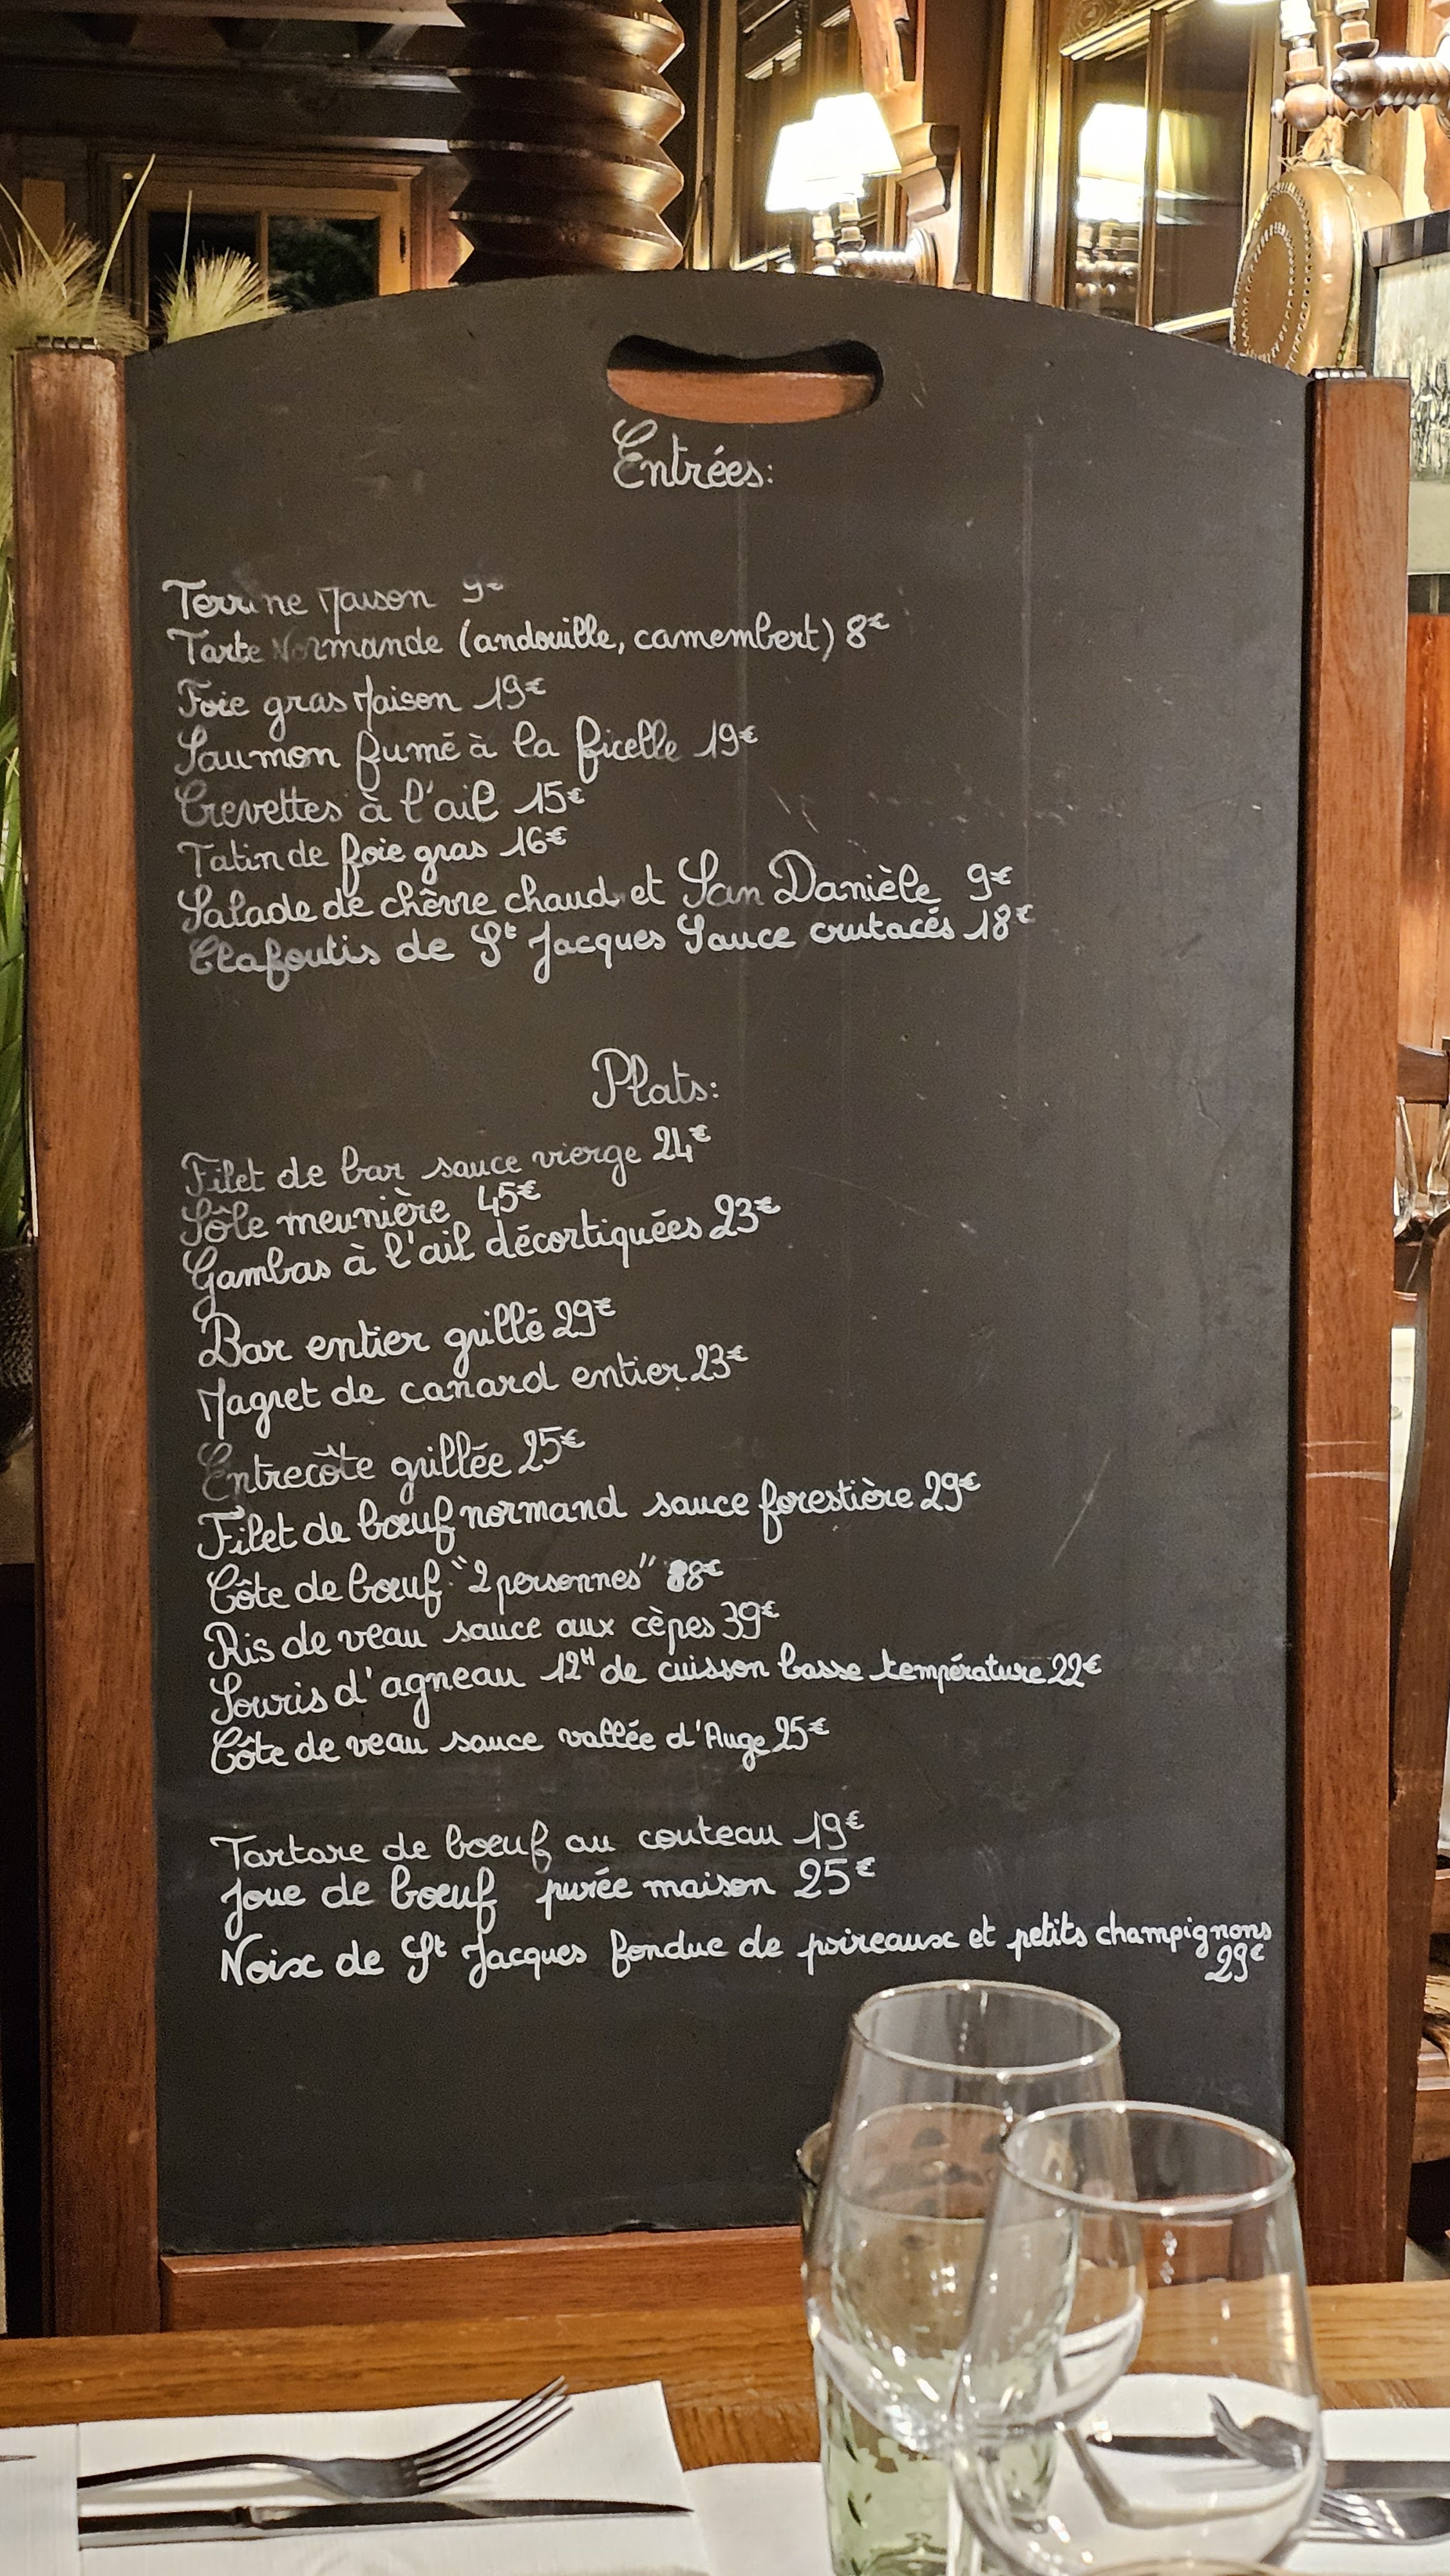 Entrées:
Terrine Maison 9€
Tarte Normande (andouille, camembert) 8€
Foie gras Maison 19€
Saumon fumé à la ficelle 19€
Crevettes à l'ail 15€
Tatin de foie gras 16€
Salade de chèvre chaud et San Danièle 9€
Clafoutis de St Jacques Sauce crutacés 18€
Plats:
Filet de bar sauce vierge 24€
Sôle meunière 45€
Gambas à l'ail décortiquées 23€
Bar entier grillé 29€
Magret de canard entier 23€
Entrecôte grillée 25€
Filet de bœuf normand sauce forestière 29€
Côte de bœuf "2 personnes" 88€
Ris de veau sauce aux cèpes 39€
Souris d'agneau 12H de cuisson basse température 22€
Côte de veau sauce vallée d'Auge 25€
Tartare de bœuf au couteau 19€
Joue de bœuf purée maison 25€
Noix de St Jacques fondue de poireaux et petits champignons
29€